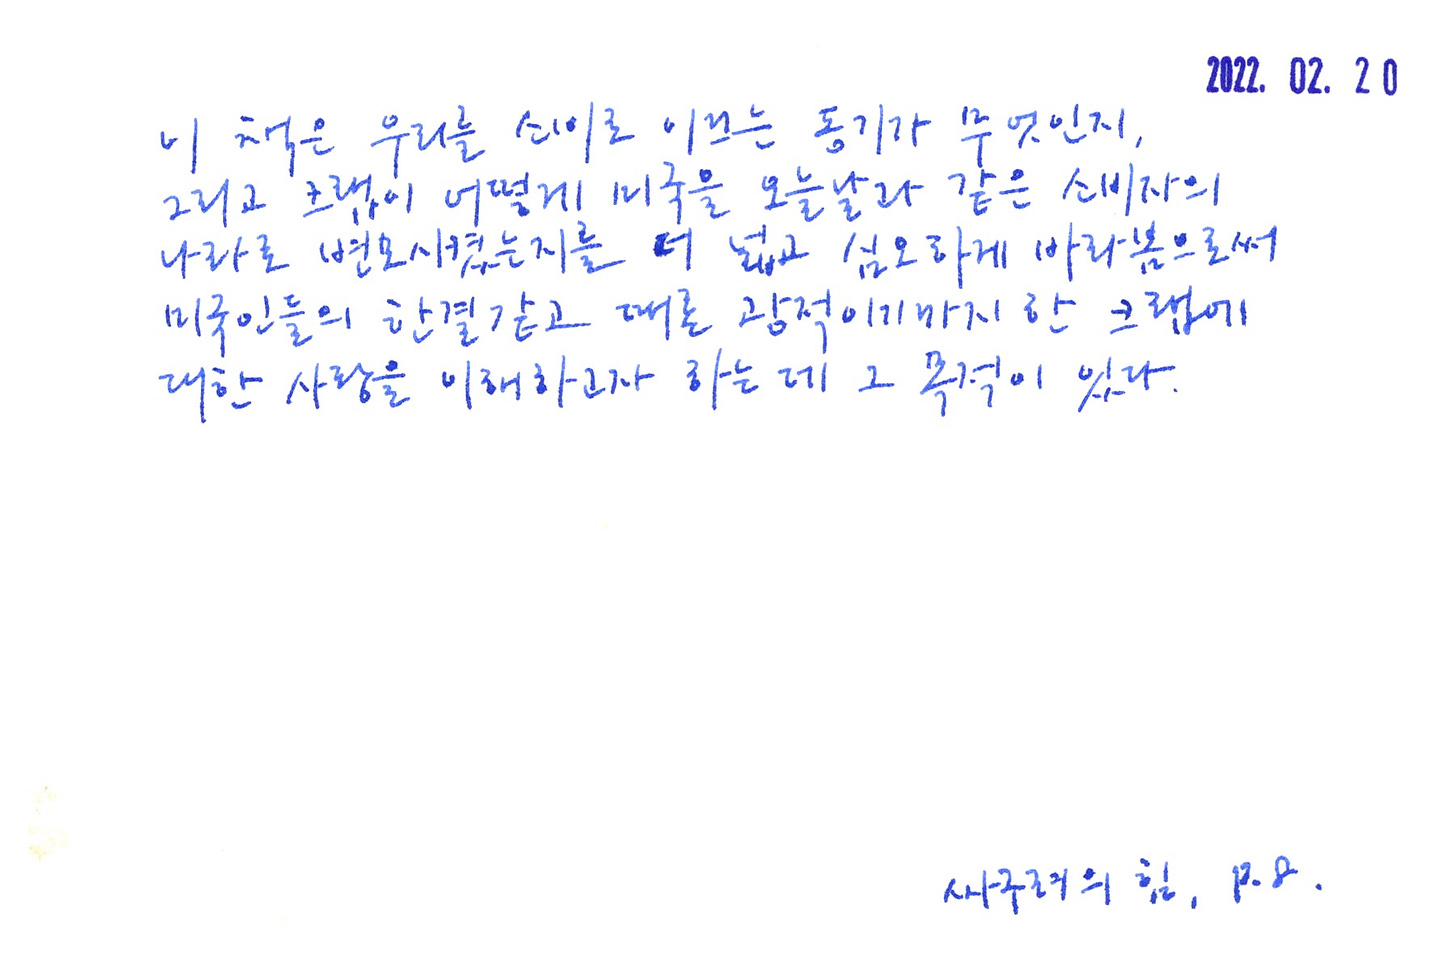 2022. 02. 20
이 책은 우리를 소비로 이끄는 동기가 무엇인지,
그리고 크랩이 어떻게 미국을 오늘날과 같은 소비자의
나라로 변모시켰는지를 더 넓고 심오하게 바라봄으로써
미국인들의 한결같고 때론 광적이기까지 한 크랩에
대한 사랑을 이해하고자 하는 데 그 목적이 있다.
싸구려의 힘, p.8.